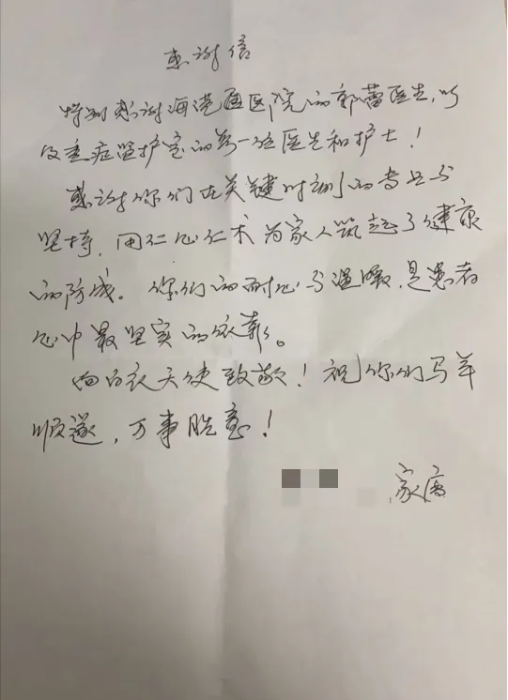 感谢信
特别感谢海港医院的郭蕾医生，以
及重症监护室的每一位医生和护士！
感谢你们在关键时刻的专业与
坚持，用仁心仁术为家人筑起了健康
的防城。你们的耐心与温暖，是患者
心中最坚实的依靠。
向白衣天使致敬！祝你们马年
顺遂，万事胜意！
家属